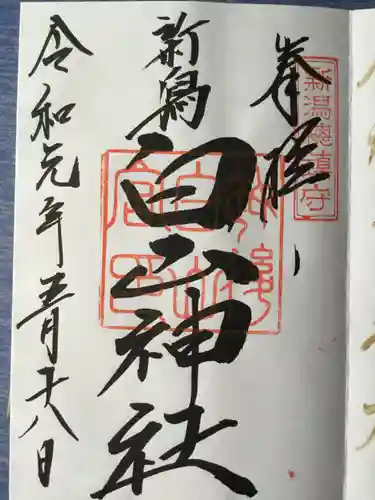 奉拝
新潟総鎮守
新潟
白山神社
令和元年五月十八日